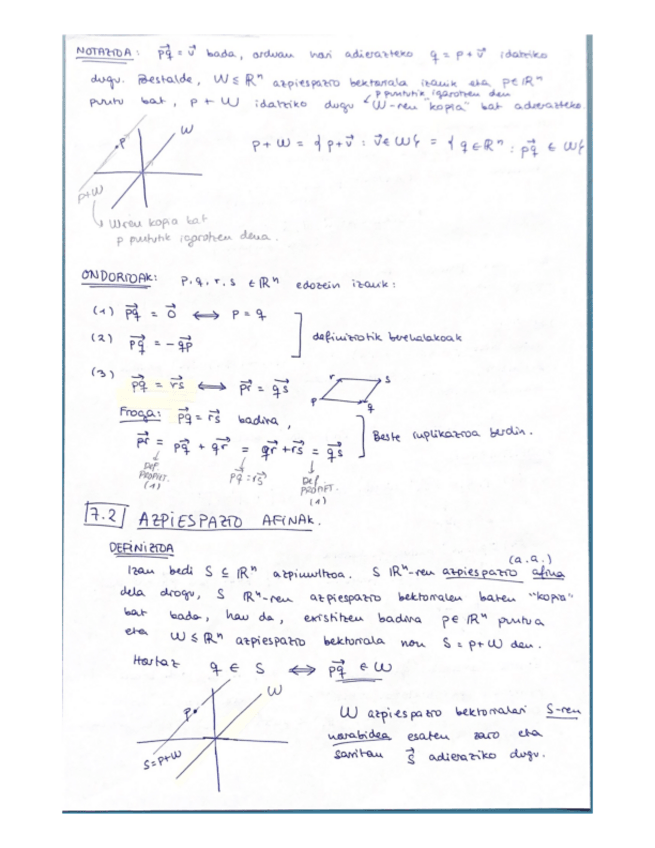 NOTAZIOA: p⃗q = v⃗ bada, orduan hori adierazteko q = p + v⃗ idatziko
dugu. Bestalde, W ≤ ℝⁿ azpiespazio bektoriala izanik eta p∈ℝⁿ
p puntutik igarotzen den
puntu bat, p + W idatziko dugu W-ren "kopia" bat adierazteko.
W
p
p + W = { p + v⃗ : v⃗ ∈ W } = { q ∈ ℝⁿ : p⃗q ∈ W }
p+W
W ren kopia bat
p puntutik igarotzen dena.
ONDORIOAK: p, q, r, s ∈ ℝⁿ edozein izanik:
(1) p⃗q = 0⃗ ⟺ p = q
definiziotik berehalakoak
(2) p⃗q = - q⃗p
(3) p⃗q = r⃗s ⟺ p⃗r = q⃗s
r s
p q
Froga: p⃗q = r⃗s badira,
Beste inplikazioa berdin.
p⃗r = p⃗q + q⃗r = q⃗r + r⃗s = q⃗s
Def. PROPIET. (1)
p⃗q = r⃗s
Def. PROPIET. (1)
7.2 AZPIESPAZIO AFINAK.
DEFINIZIOA
(a.a.)
Izan bedi S ⊆ ℝⁿ azpimultzoa. S ℝⁿ-ren azpiespazio afina
dela diogu, S ℝⁿ-ren azpiespazio bektorialen baten "kopia"
bat bada, hau da, existitzen badira p∈ℝⁿ puntua
eta W ≤ ℝⁿ azpiespazio bektoriala non S = p + W den.
Hortaz q ∈ S ⟺ p⃗q ∈ W
W
p
S = p+W
W azpiespazio bektorialari S-ren
norabidea esaten zaio eta
sarritan S⃗ adieraziko dugu.